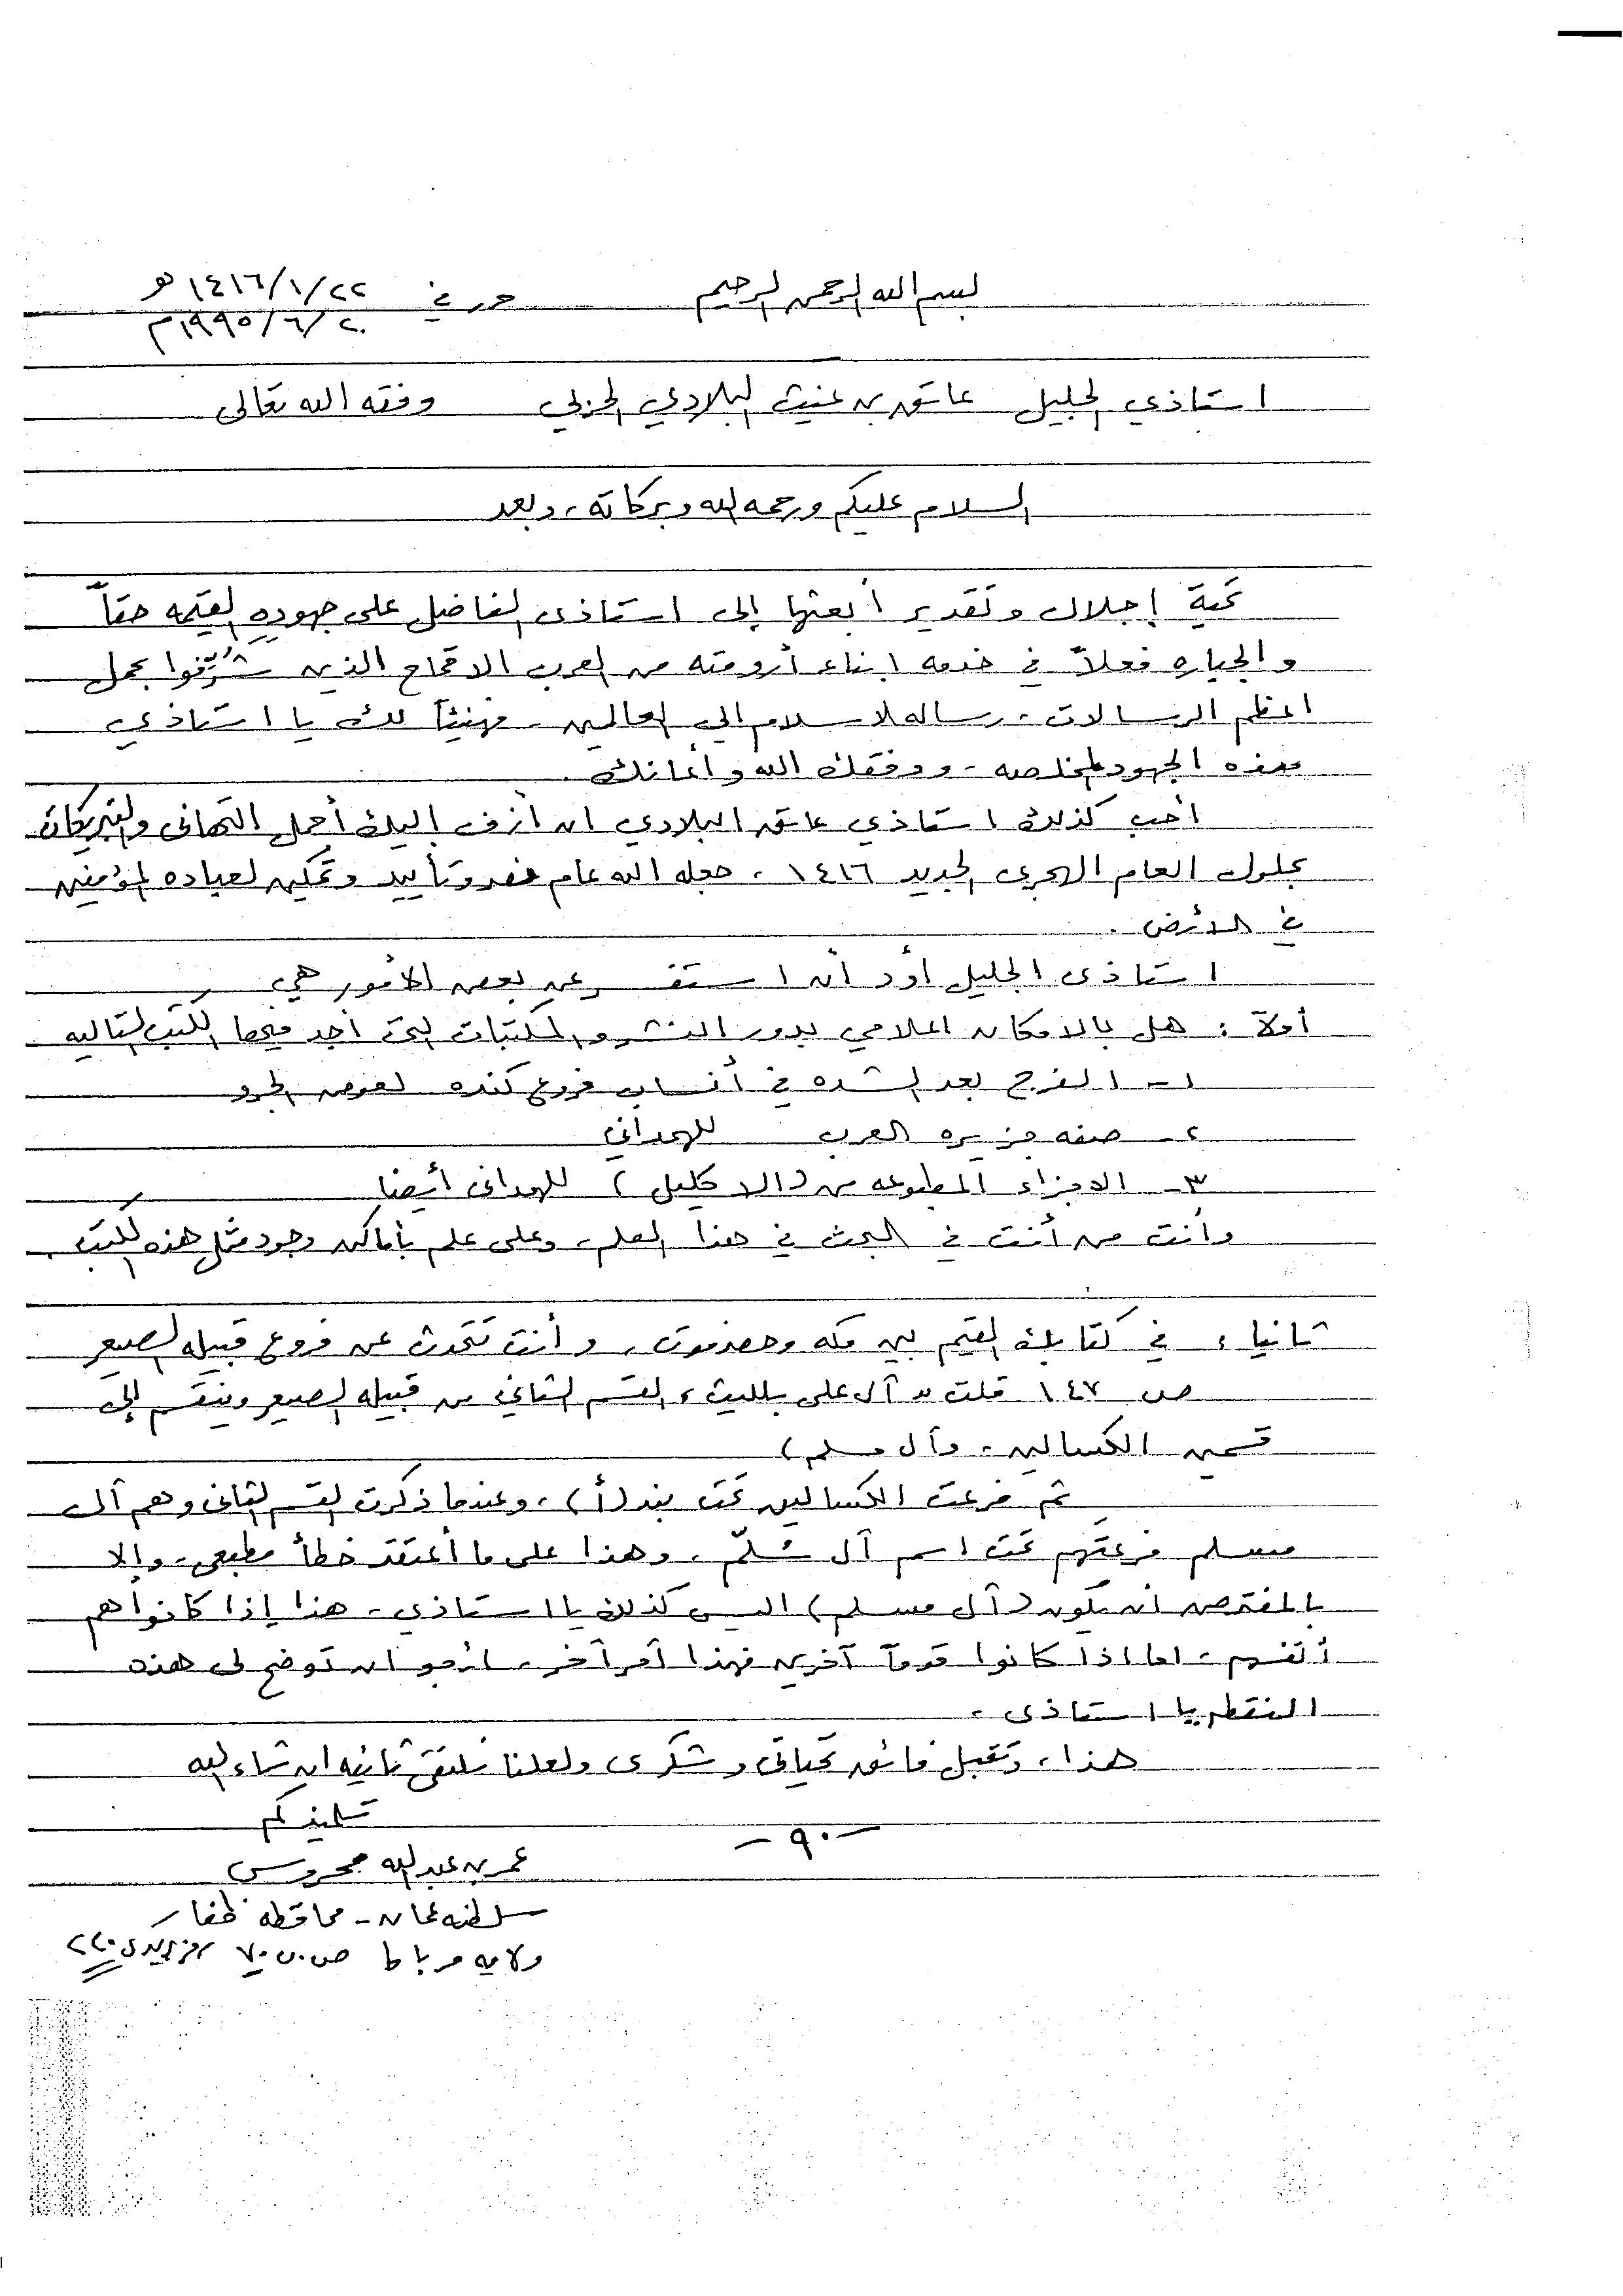 بسم الله الرحمن الرحيم حرر في ٢٢/١/١٤١٦ هـ
٢٠/٦/١٩٩٥م
استاذي الجليل عاتق بن غيث البلادي الحربي وفقه الله تعالى
السلام عليكم ورحمه الله وبركاته، وبعد
تحية إجلال وتقدير أبعثها إلى استاذى الفاضل على جهوده القيمه حقاً
والجباره فعلاً في خدمه ابناء أرومته من العرب الاقحاح الذين شُرِّفوا بحمل
اعظم الرسالات، رساله الاسلام إلى العالمين. فهنيئاً لك يا استاذي
بهذه الجهود المخلصه - ووفقك الله وأعانك.
أحب كذلك استاذي عاتق البلادي ان أزف إليك أجمل التهانى والتبريكات
بحلول العام الهجرى الجديد ١٤١٦، جعله الله عام نصر وتأييد وتمكين لعباده المؤمنين
في الأرض.
استاذى الجليل أود أن استفسر عن بعض الأمور هي
أولاً: هل بالامكان اعلامي بدور النشر والمكتبات التى أجد فيها الكتب التاليه
١- الفرج بعد الشده في أنساب فروع كنده لعوض الجرو
٢- صفه جزيره العرب للهمداني
٣- الاجزاء المطبوعه من (الاكليل) للهمدانى أيضا
وأنت من أنت في البحث في هذا العلم، وعلى علم بأماكن وجود مثل هذه الكتب.
ثانياً: في كتابك القيم بين مكه وحضرموت، وأنت تتحدث عن فروع قبيله الصيعر
ص ١٤٧ قلت " آل على بلليث، القسم الثاني من قبيله الصيعر وينقسم إلى
قسمين الكسالين، وآل مسلم)
ثم فرعت الكسالين تحت بند (أ)، وعندما ذكرت القسم الثانى وهم آل
مسلم فرعتهم تحت اسم آل سُلّم، وهذا على ما أعتقد خطأ مطبعى، وإلا
بالمفترض ان يكون (آل مسلم) اليس كذلك يا استاذي، هذا إذا كانوا هم
أنفسهم، اما اذا كانوا قوماً آخرين فهذا أمر آخر، ارجو ان توضح لى هذه
النقطه يا استاذى.
هذا، وتقبل فائق تحياتى وشكرى ولعلنا نلتقى ثانيه ان شاء الله
تلميذكم
-٩٠-
عمر بن عبدالله محروس
سلطنه عمان - محافظه ظفار
ولايه مرباط ص.ب ٧٠ رمز بريدى ٢٢٠